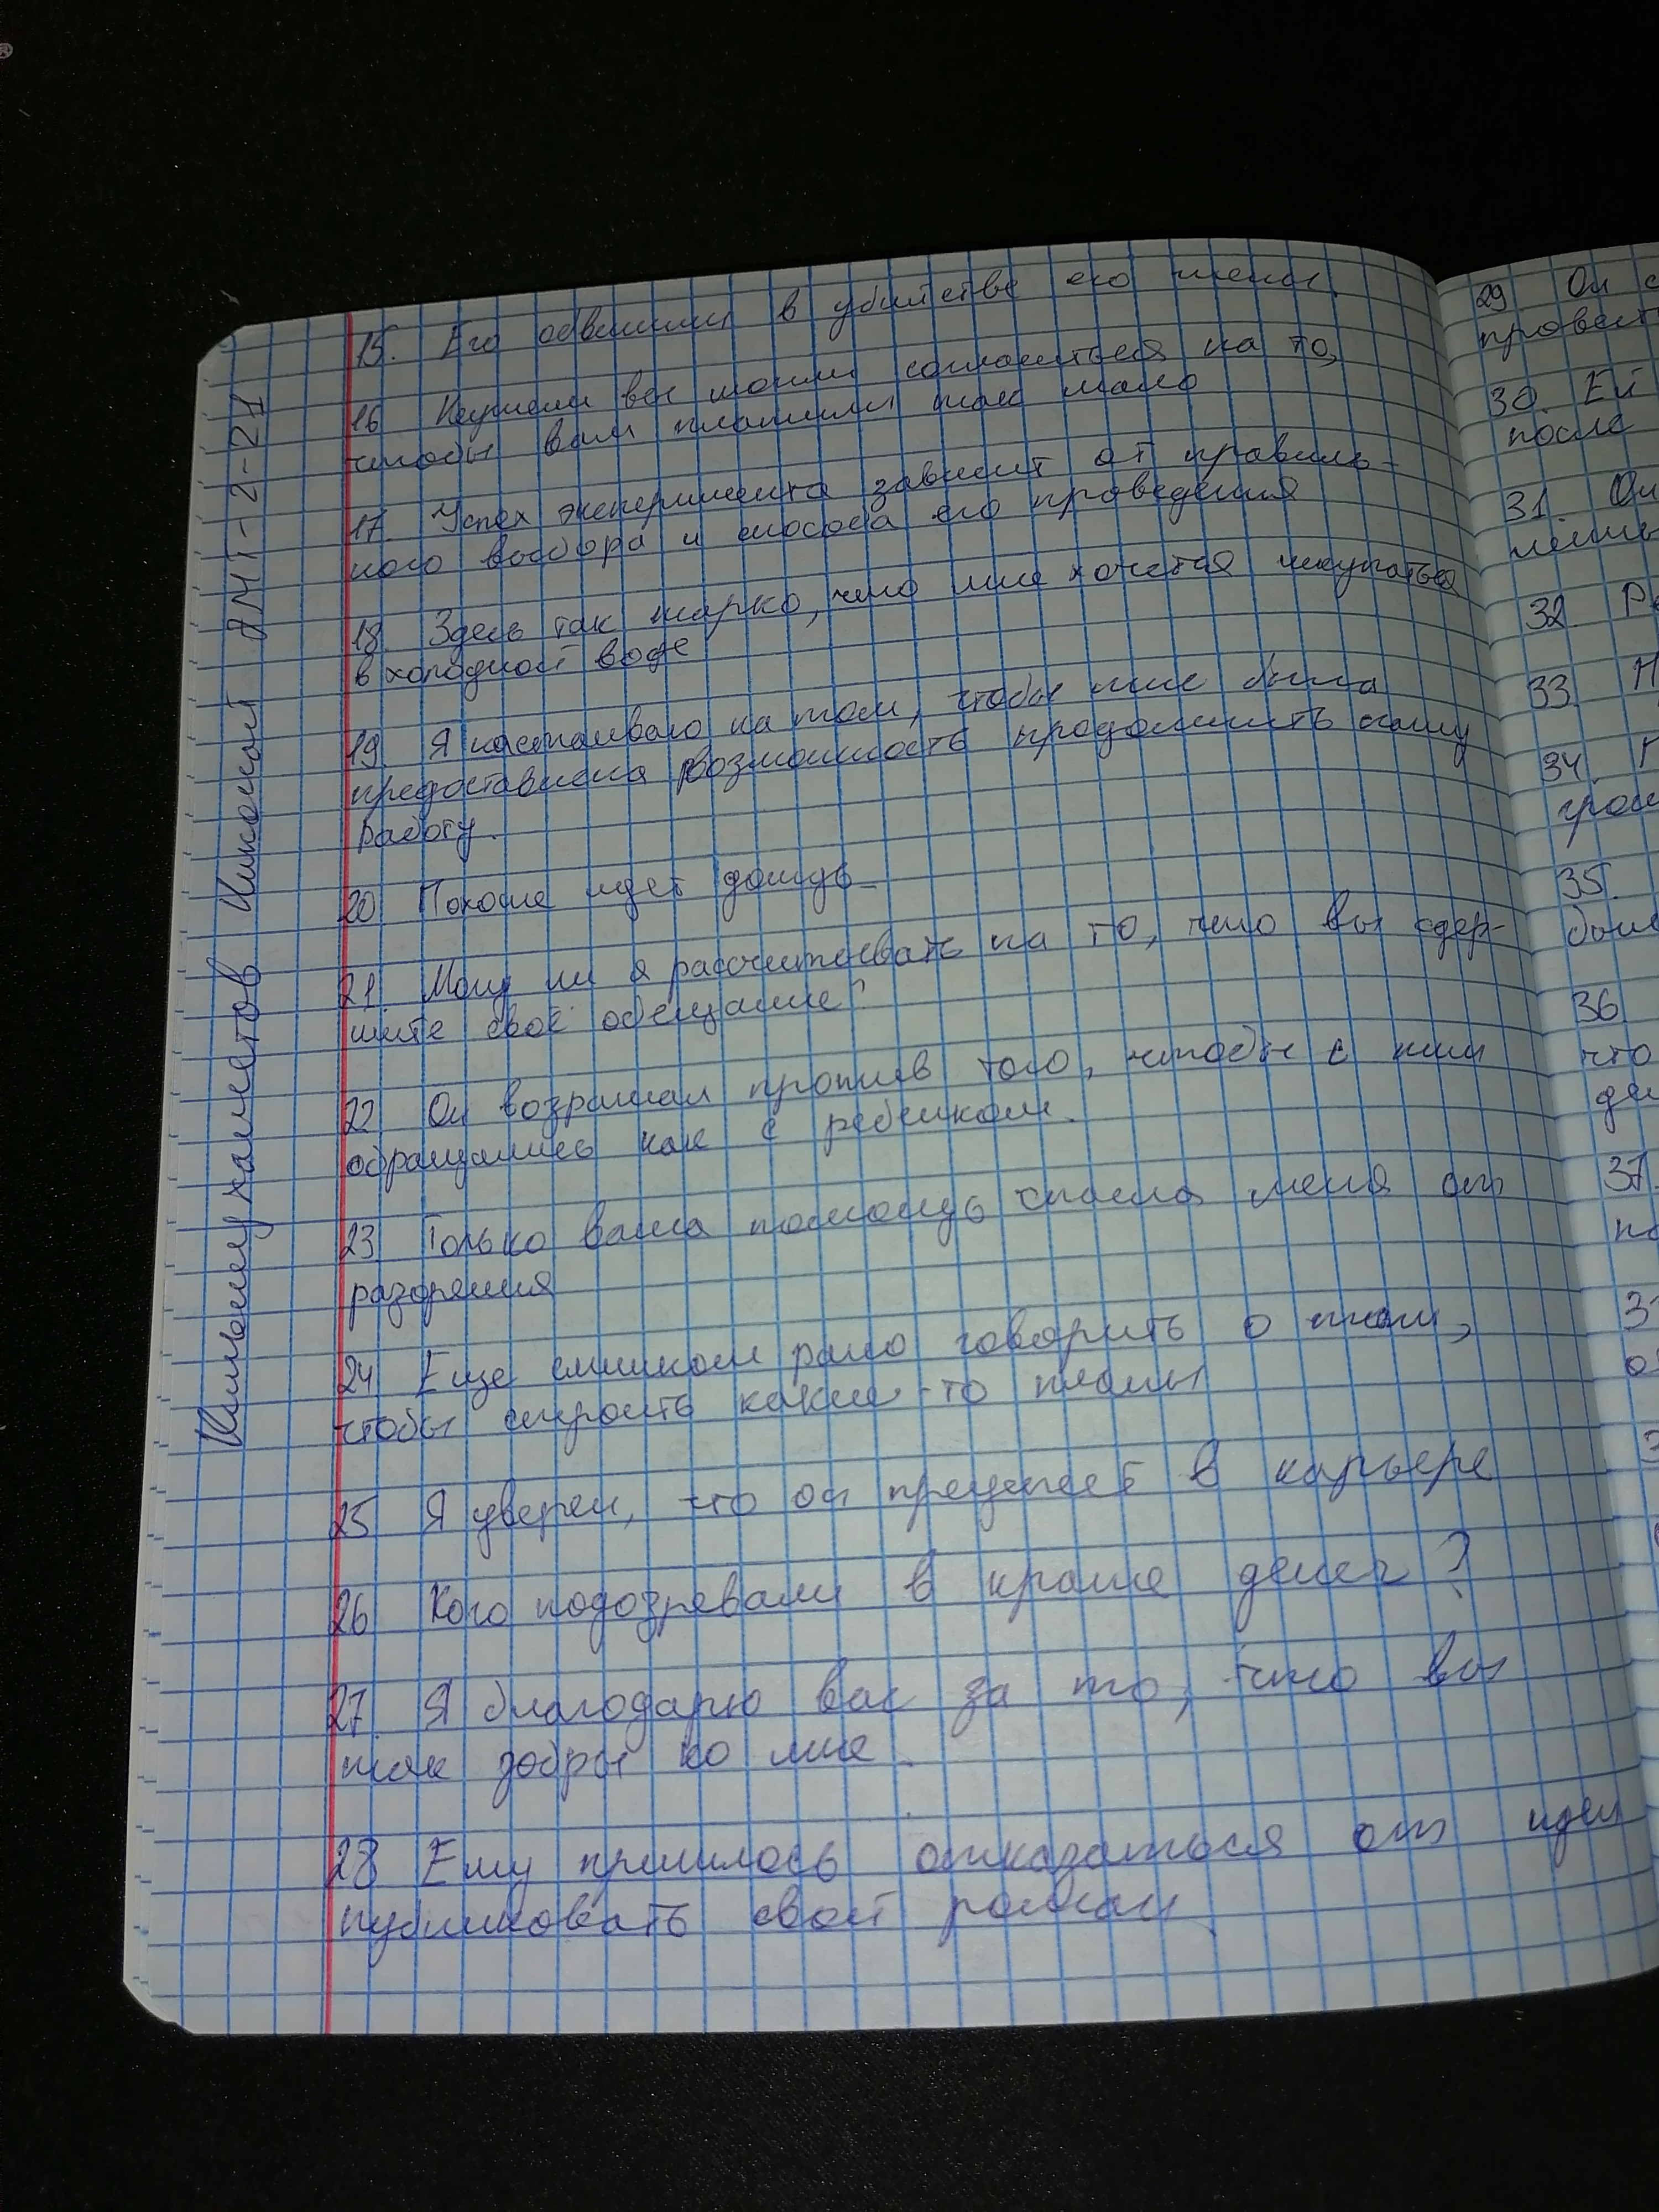 Кильмухаметов Никоной ЯМТ-2-21
15. Его обвинили в убийстве его жены.
16 Неужели вы могли согласиться на то,
чтобы вам платили так мало
17. Успех эксперимента зависит от правиль-
ного выбора и способа его проведения
18 Здесь так жарко, что мне хочется искупаться
в холодной воде
19 Я настаиваю на том, чтобы мне была
предоставлена возможность продолжить нашу
работу.
20 Похоже идет дождь
21 Могу ли я рассчитывать на то, что вы сдер-
жите своё обещание?
22 Он возражал против того, чтобы с ним
обращались как с ребенком.
23 Только ваша помощь спасла меня от
разорения
24 Еще слишком рано говорить о том,
чтобы строить какие-то планы
25 Я уверен, что он преуспеет в карьере
26 Кого подозревали в краже денег?
27 Я благодарю вас за то, что вы
так добры ко мне.
28 Ему пришлось отказаться от идеи
публиковать свой роман
29 Он
30. Ей
после
31. Он
32
33
34.
35.
36
что
37.